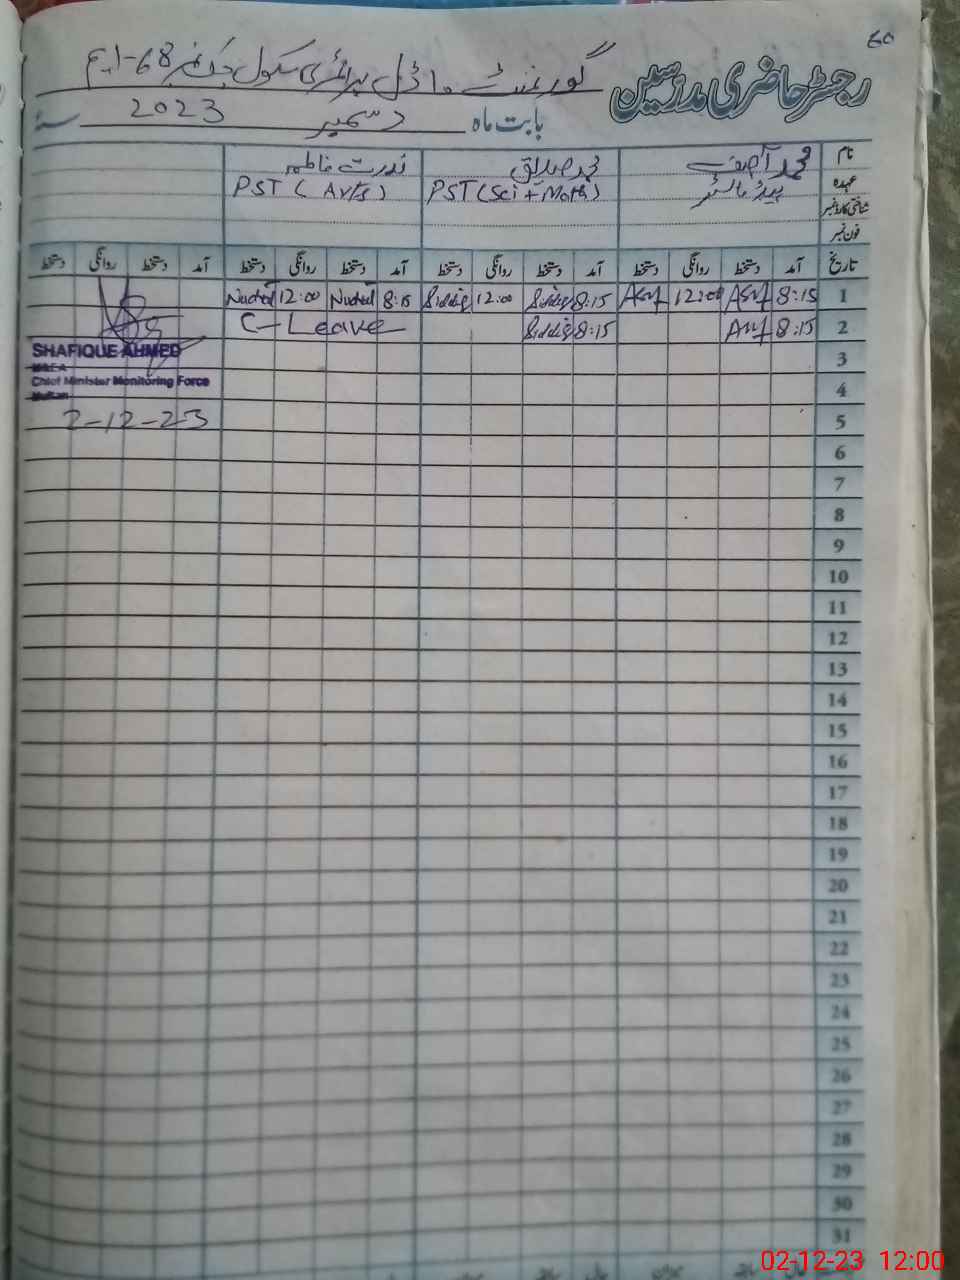 60
رجسٹر حاضری مدرسین گورنمنٹ ماڈل پرائمری سکول چک نمبر 68-ایم
بابت ماہ دسمبر 2023 سنہ
نام محمد آصف محمد صدیق ندرت فاطمہ
عہدہ ہیڈ ماسٹر PST (Sci + Math) PST (Arts)
شناختی کارڈ نمبر
فون نمبر
تاریخ آمد دستخط روانگی دستخط آمد دستخط روانگی دستخط آمد دستخط روانگی دستخط آمد دستخط روانگی دستخط
1 8:15 Asif 12:00 Asif 8:15 Siddiq 12:00 Siddiq 8:15 12:00
2 8:15 Asif 8:15 Siddiq C-Leave
SHAFIQUE AHMED
MEA
Chief Minister Monitoring Force
Multan
2-12-23
3
4
5
6
7
8
9
10
11
12
13
14
15
16
17
18
19
20
21
22
23
24
25
26
27
28
29
30
31
02-12-23 12:00